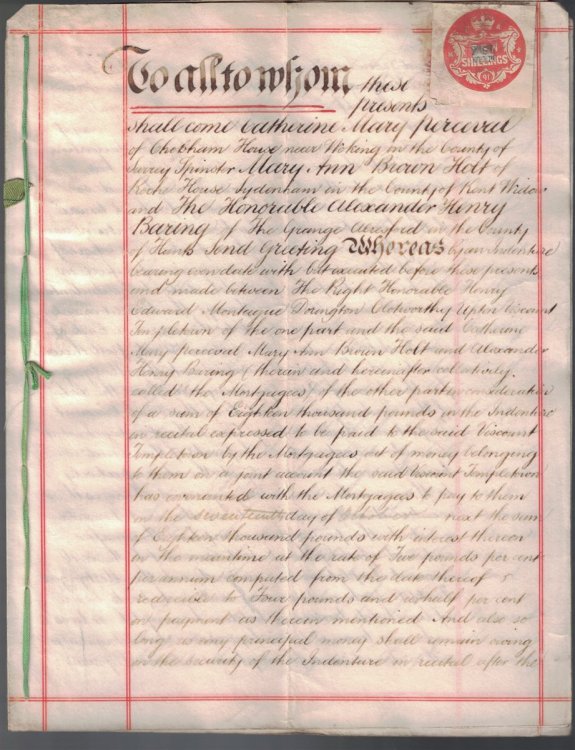 TEN
SHILLINGS
To all to whom these
presents
shall come Catherine Mary Perceval
of Chobham House near Woking in the County of
Surrey Spinster Mary Ann Brown Holt of
Roche House Sydenham in the County of Kent Widow
and The Honorable Alexander Henry
Baring of The Grange Alresford in the County
of Hants Send Greeting Whereas by an Indenture
bearing even date with but executed before these presents
and made between The Right Honorable Henry
Edward Montague Dorington Clotworthy Upton Viscount
Templetown of the one part and the said Catherine
Mary Perceval Mary Ann Brown Holt and Alexander
Henry Baring (therein and hereinafter collectively
called the Mortgagees) of the other part in consideration
of a sum of Eighteen thousand pounds in the Indenture
in recital expressed to be paid to the said Viscount
Templetown by the Mortgagees out of money belonging
to them on a joint account the said Viscount Templetown
has covenanted with the Mortgagees to pay to them
on the seventeenth day of next the sum
of Eighteen thousand pounds with interest thereon
in the meantime at the rate of Five pounds per cent
per annum computed from the date thereof
reducible to Four pounds and a half per cent
on payment as therein mentioned And also so
long as any principal money shall remain owing
on the security of the Indenture in recital after the